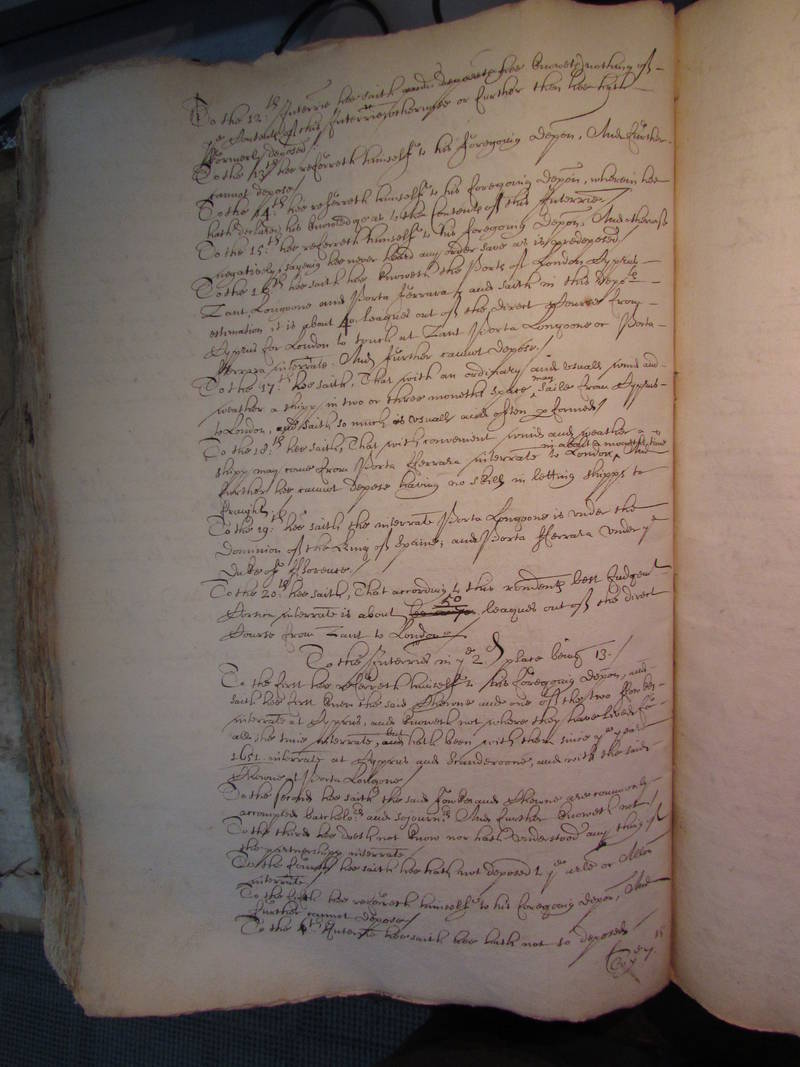 To the 12:th Interrie hee saith hee knoweth nothing of
ye Contents of this Interrie otherwise or further then hee hath
formerly deposed/
To the 13th hee referreth himselfe to his foregoing depon, And further
cannot depose/
To the 14:th hee referreth himselfe to his foregoing depon, wherein hee
hath declared his knowledge as to the Contents of this Interrie/
To the 15:th hee referreth himselfe to his foregoing depon, And otherwise
negatively, sayeing hee never heard any order save as is predeposed/
To the 16th hee saith hee knoweth the Ports of London Cyprus
Zant, Longone and Porta Ferrara, and saith in this depots
estimation it is about 40 leagues out of the direct Course from
Cyprus for London to touch at Zant Porta Longone or Porta
Ferrara interrate. And further cannot depose./
To the 17:th hee saith, That with an ordinary and usuall wind and
weather a shipp in two or three moneths space may saile from Cyprus
to London, and saith so much is usually and often performed/
To the 18:th hee saith, That with convenient winde and weather a
shipp may come from Porta Ferrara interrate to London, in about a moneths time And
further hee cannot depose having no skill in letting shipps to
fraight./
To the 19:th hee saith the interrate Porta Longone is under the
Dominion of the King of Spaine; and Porta Ferrara under ye
Duke of Florence./
To the 20:th hee saith, That according to this rendents best Judgemt
interrate is about 50 leagues out of the direct
Course from Zant to London/
To the Interries in ye 2d place being 13./
To the first hee referreth himselfe to his foregoing depon, and
saith hee first knew the said and one of the two
interrate at Cyprus, and knoweth not where they have lived for
all the time interrate, but hath been with them since ye yeare
1651 interrate at Cyprus and Scanderoone, and with the said
at Porta Longone
To the second hee saith the said and are commonly
accompted batchelors and sojourners And further knoweth not/
To the third hee doth not know nor hath understood any thing of
the partnershipp interrate
To the fourth hee saith hee hath not deposed to ye arle or Allon
interrate
To the fifth hee referreth himselfe to his foregoing depon, And
further cannot depose/
To the 6th Interrie hee saith hee hath not so deposed/
To ye 7th